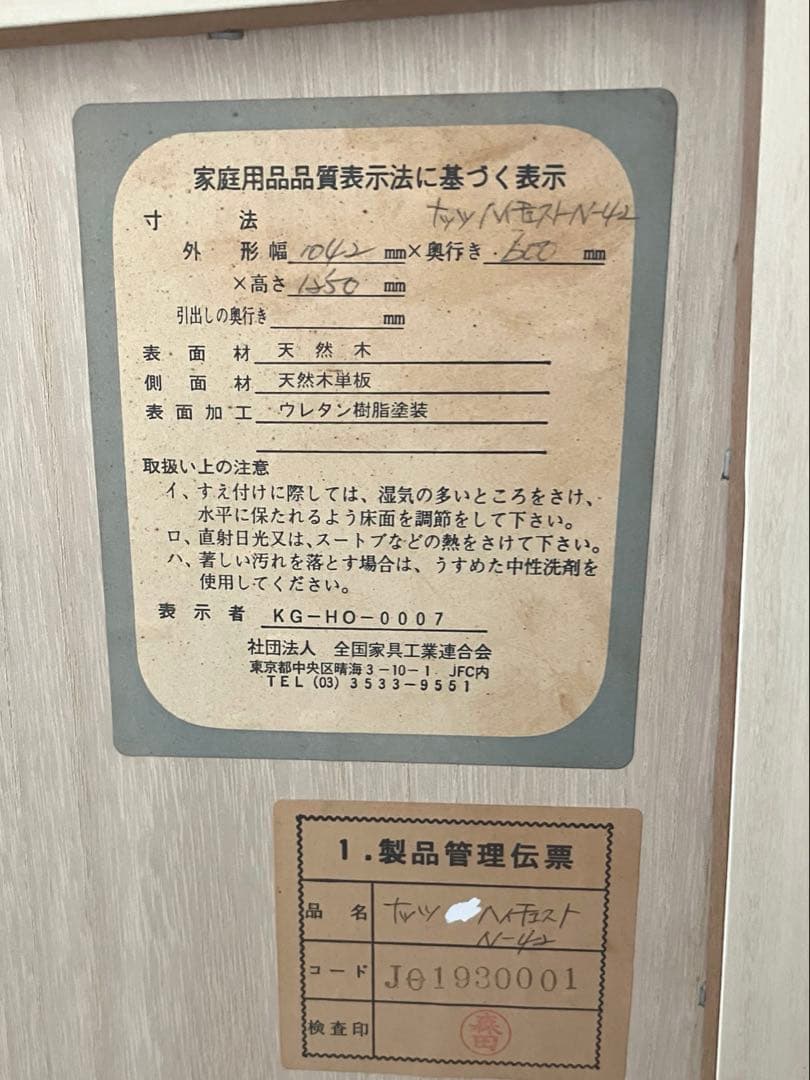 家庭用品品質表示法に基づく表示
寸 法 ナッツ ハイチェスト N-42
外 形 幅 1042 mm×奥行き 600 mm
×高さ 1250 mm
引出しの奥行き mm
表 面 材 天 然 木
側 面 材 天然木単板
表面加工 ウレタン樹脂塗装
取扱い上の注意
イ、すえ付けに際しては、湿気の多いところをさけ、
水平に保たれるよう床面を調節をして下さい。
ロ、直射日光又は、ストーブなどの熱をさけて下さい。
ハ、著しい汚れを落とす場合は、うすめた中性洗剤を
使用してください。
表 示 者 KG-HO-0007
社団法人 全国家具工業連合会
東京都中央区晴海3-10-1 JFC内
TEL (03) 3533-9551
1.製品管理伝票
品 名 ナッツ ハイチェスト
N-42
コード J01930001
検査印 森田